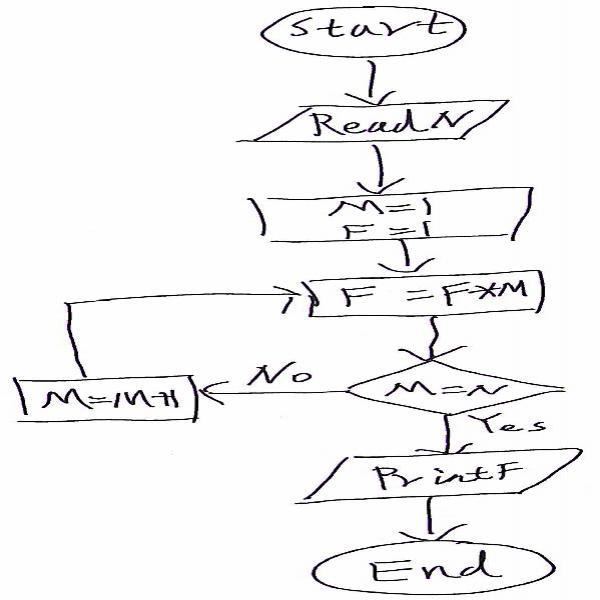 Start
Read N
M=1
F =1
F = F*M
No
M=N
M=M+1
Yes
Print F
End